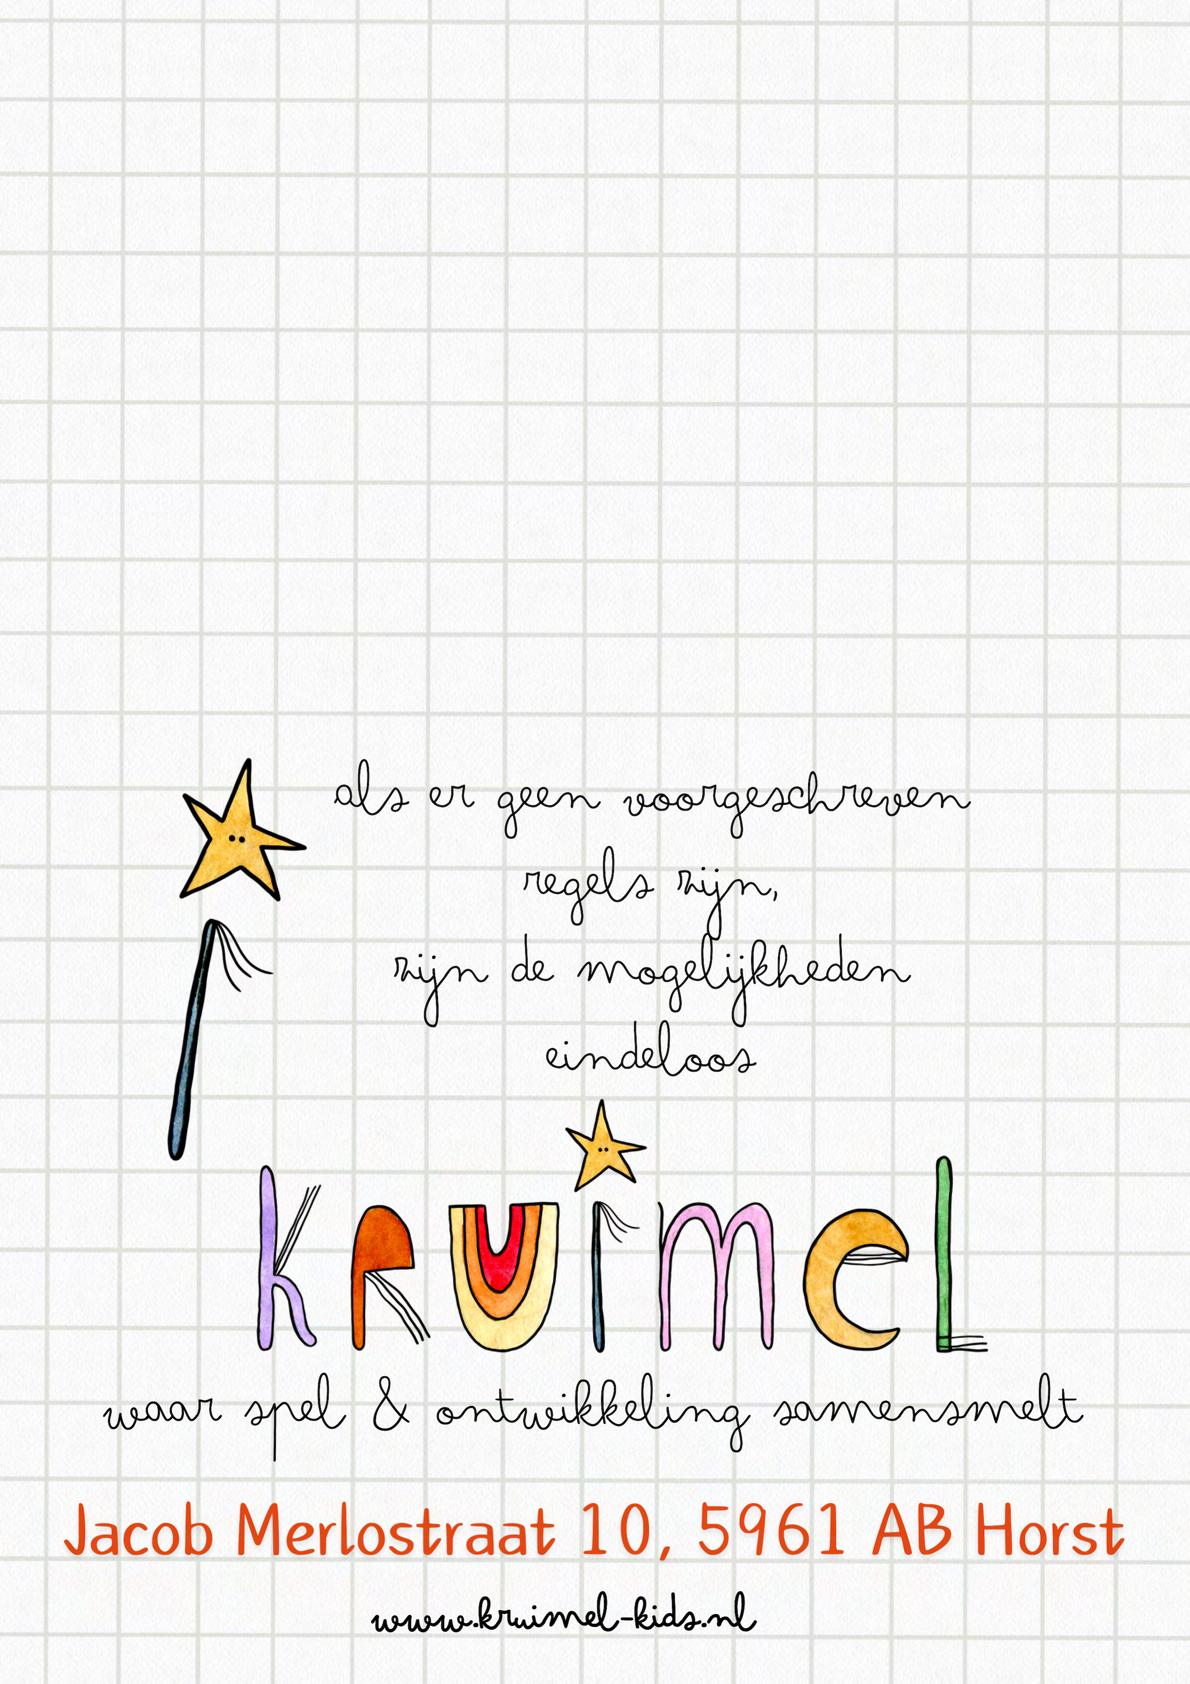 als er geen voorgeschreven
regels zijn,
zijn de mogelijkheden
eindeloos
kRUimel
waar spel & ontwikkeling samensmelt
Jacob Merlostraat 10, 5961 AB Horst
www.kruimel-kids.nl